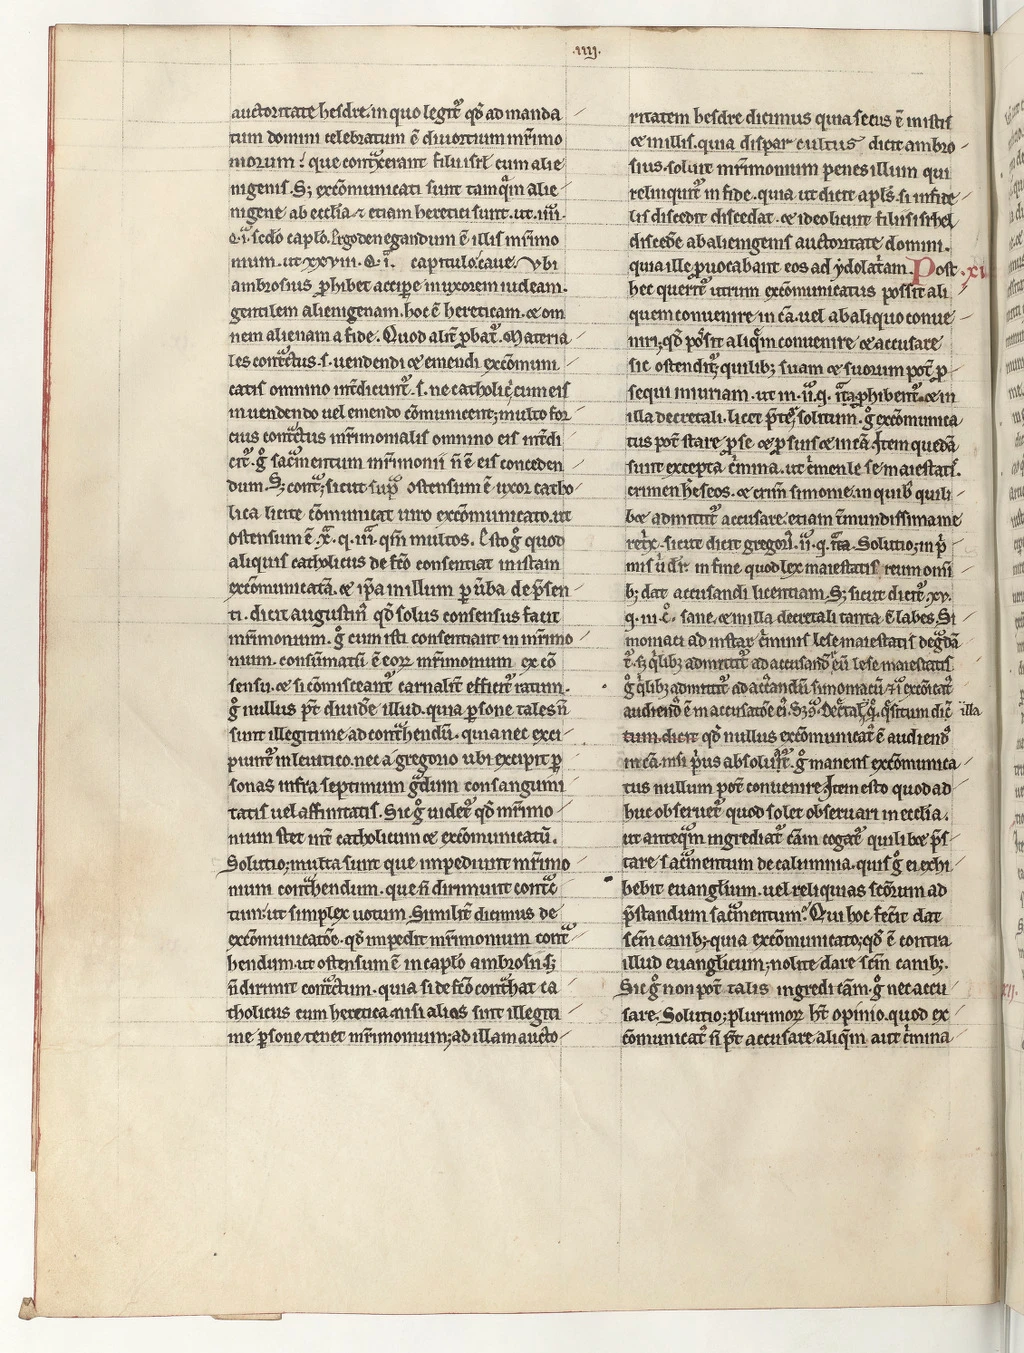 .iiij.
auctoritate hesdre. in quo legit᷑ qd̓ ad manda
tum domini celebratum ē diuortium mr̄imo
niorum: que contͣxerant filii isrl̓ cum alie
nigenis. S; excōmunicati sunt tamqͣm alie
nigene ab ecclīa ⁊ etiam heretici sunt. ut. iiii.
q. i. sc̄do cap̄lo. Ergo denegandum ē illis mr̄imo
nium. ut xxviii. q. i. capitulo. caue. Vbi
ambrosius ꝓhibet accipe in uxorem iudeam.
gentilem alienigenam. hoc ē hereticam. ⁊ om
nem alienam a fide. Quod alit̓ ꝓbat᷑. Materia
les contͣctus. s. uendendi ⁊ emendi excōmuni
catis omnino int̓dicunt᷑. s. ne catholic̓ cum eis
in uendendo uel emendo cōmunicent; multo for
tius contͣctus mr̄imonialis omnino eis int̓di
cit᷑. gͦ sacͣmentum mr̄imonii n̄ ē eis conceden
dum. S; contͣ; sicut supͣ ostensum ē uxor catho
lica licite cōmunicat uiro excōmunicato. ut
ostensum ē. xͣ. q. iiiͣ. qm̄ multos. Esto gͦ quod
aliquis catholicus de fc̄o consentiat in istam
excōmunicatā. ⁊ ip̄a in illum ꝑ ūba de p̄sen
ti. dicit augustin̄ qd̓ solus consensus facit
mr̄imonium. gͦ cum isti consentiant in mr̄imo
nium. consūmatū ē eoꝝ mr̄imonium ex cō
sensu. ⁊ si cōmisceant᷑ carnalit̓ efficit᷑ ratum.
gͦ nullus pt̄ diuid̓e illud. quia ꝑsone tales n̄
sunt illegitime ad contͣhendū. quia nec exci
piunt᷑ in leuitico. nec a gregorio ubi excipit ꝑ
sonas infra septimum gͣdum consangumi
tatis uel affinitatis. Sic gͦ uidet᷑ qd̓ mr̄imo
nium stet int̓ catholicum ⁊ excōmunicatū.
Solutio; multa sunt que impediunt mr̄imo
nium contͣhendum. que n̄ dirimunt contͣc
tum: ut simplex uotum. Similit̓ dicimus de
excōmunicatōe. qd̓ impedit mr̄imonium contͣ
hendum. ut ostensum ē in cap̄lo ambrosii. s;
n̄ dirimit contͣctum. quia si de fc̄o contͣhat ca
tholicus cum heretica. nisi alias sint illegiti
me ꝑsone. tenet mr̄imonium; ad illam aucto
ritatem hesdre dicimus quia secus ē in istis
⁊ in illis. quia dispar cultus dicit ambro
sius. soluit mr̄imonium penes illum qui
relinquit᷑ in fide. quia ut dicit apl̓s. si infide
lis discedit discedat. ⁊ ideo licuit filiis isrhel
disced̓e ab alienigenis auctoritate domini.
quia ille ꝓuocabant eos ad ydolatͣam. Post .xi.
hec querit᷑ utrum excōmunicatus possit ali
quem conuenire in cā. uel ab aliquo conue
niri; qd̓ pͦsit aliqͣm conuenire ⁊ accusare
sic ostendit᷑; quilib; suam ⁊ suorum pot̄ ꝑ
sequi iniuriam. ut in. ii. q. ita ꝓhibent᷑. ⁊ in
illa decretali. licet p̄t̓ solitum. gͦ excōmunica
tus pot̄ stare ꝑ se ⁊ ꝑ suis ⁊ in cā. Item quedā
sunt excepta cͥmina. ut cͥmen lese maiestatis.
crimen h̓eseos. ⁊ crim̄ simonie. in quib̓ quili
bet admittit᷑ accusare. etiam īmundissima me
ret̓x. sicut dicit gregori᷑. ii. q. Solutio; in pͥ
mis in fine quod lex maiestatis reum omī
b; dat accusandi licentiam. S; sicut dicit᷑. xv.
q. iii. c̄. sane. ⁊ in illa decretali tanta ē labes. Si
moniaci ad instar cͥminis lese maiestatis degͣdā
t᷑. s; qͥlib; admittit᷑ ad accusandū eū lese maiestatis
gͦ qͥlib; admittit᷑ ad accͣandū simoniacū ⁊ ī excōīcat᷑
audiend̓ ē in accusatōe ei᷑. S; decͣtal. q̄. qͥsitum dic̄ illa
tum. dicit qd̓ nullus excōmunicat᷑ ē audiend᷑
in cā. nisi pͥus absolut᷑. gͦ manens excōmunica
tus nullum pot̄ conuenire. Item esto quod ad
huc obseruet᷑ quod solet obseruari in ecclīa.
ut anteqͣm ingrediat᷑ cām cogat᷑ quilibet p̄s
tare sacͣmentum de calumnia. quis gͦ ei exhi
bebit euangl̓ium. uel reliquias sc̄orum ad
p̄standum sacͣmentum? Qui hoc fec̓it dat
sc̄m canib; quia excōmunicato; qd̓ ē contra
illud euangl̓icum; nolite dare sc̄m canib;.
Sic gͦ non pot̄ talis ingredi cām. gͦ nec accu
sare. Solutio; plurimoꝝ ht̄ opinio. quod ex
cōmunicat᷑ n̄ pt̄ accusare aliqͣm aut cͥmina